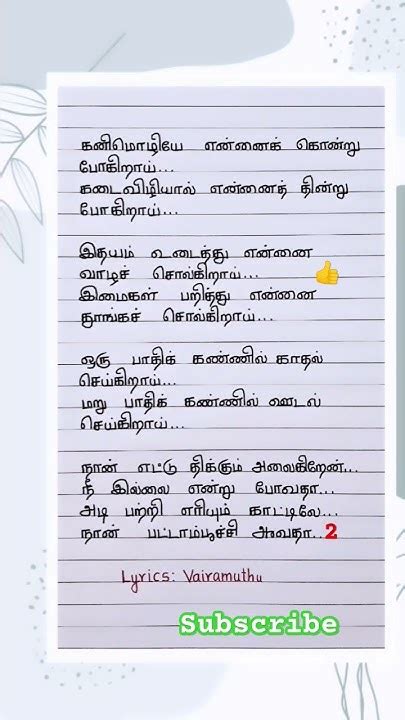 கனிமொழியே என்னைக் கொன்று
போகிறாய்...
கடைவிழியால் என்னைத் தின்று
போகிறாய்...
இதயம் உடைத்து என்னை
வாழச் சொல்கிறாய்...
இமைகள் பறித்து என்னை
தூங்கச் சொல்கிறாய்...
ஒரு பாதிக் கண்ணில் காதல்
செய்கிறாய்...
மறு பாதிக் கண்ணில் ஊடல்
செய்கிறாய்...
நான் எட்டு திக்கும் அலைகிறேன்...
நீ இல்லை என்று போவதா...
அடி பற்றி எரியும் காட்டிலே...
நான் பட்டாம்பூச்சி ஆவதா..2
Lyrics: Vairamuthu
Subscribe